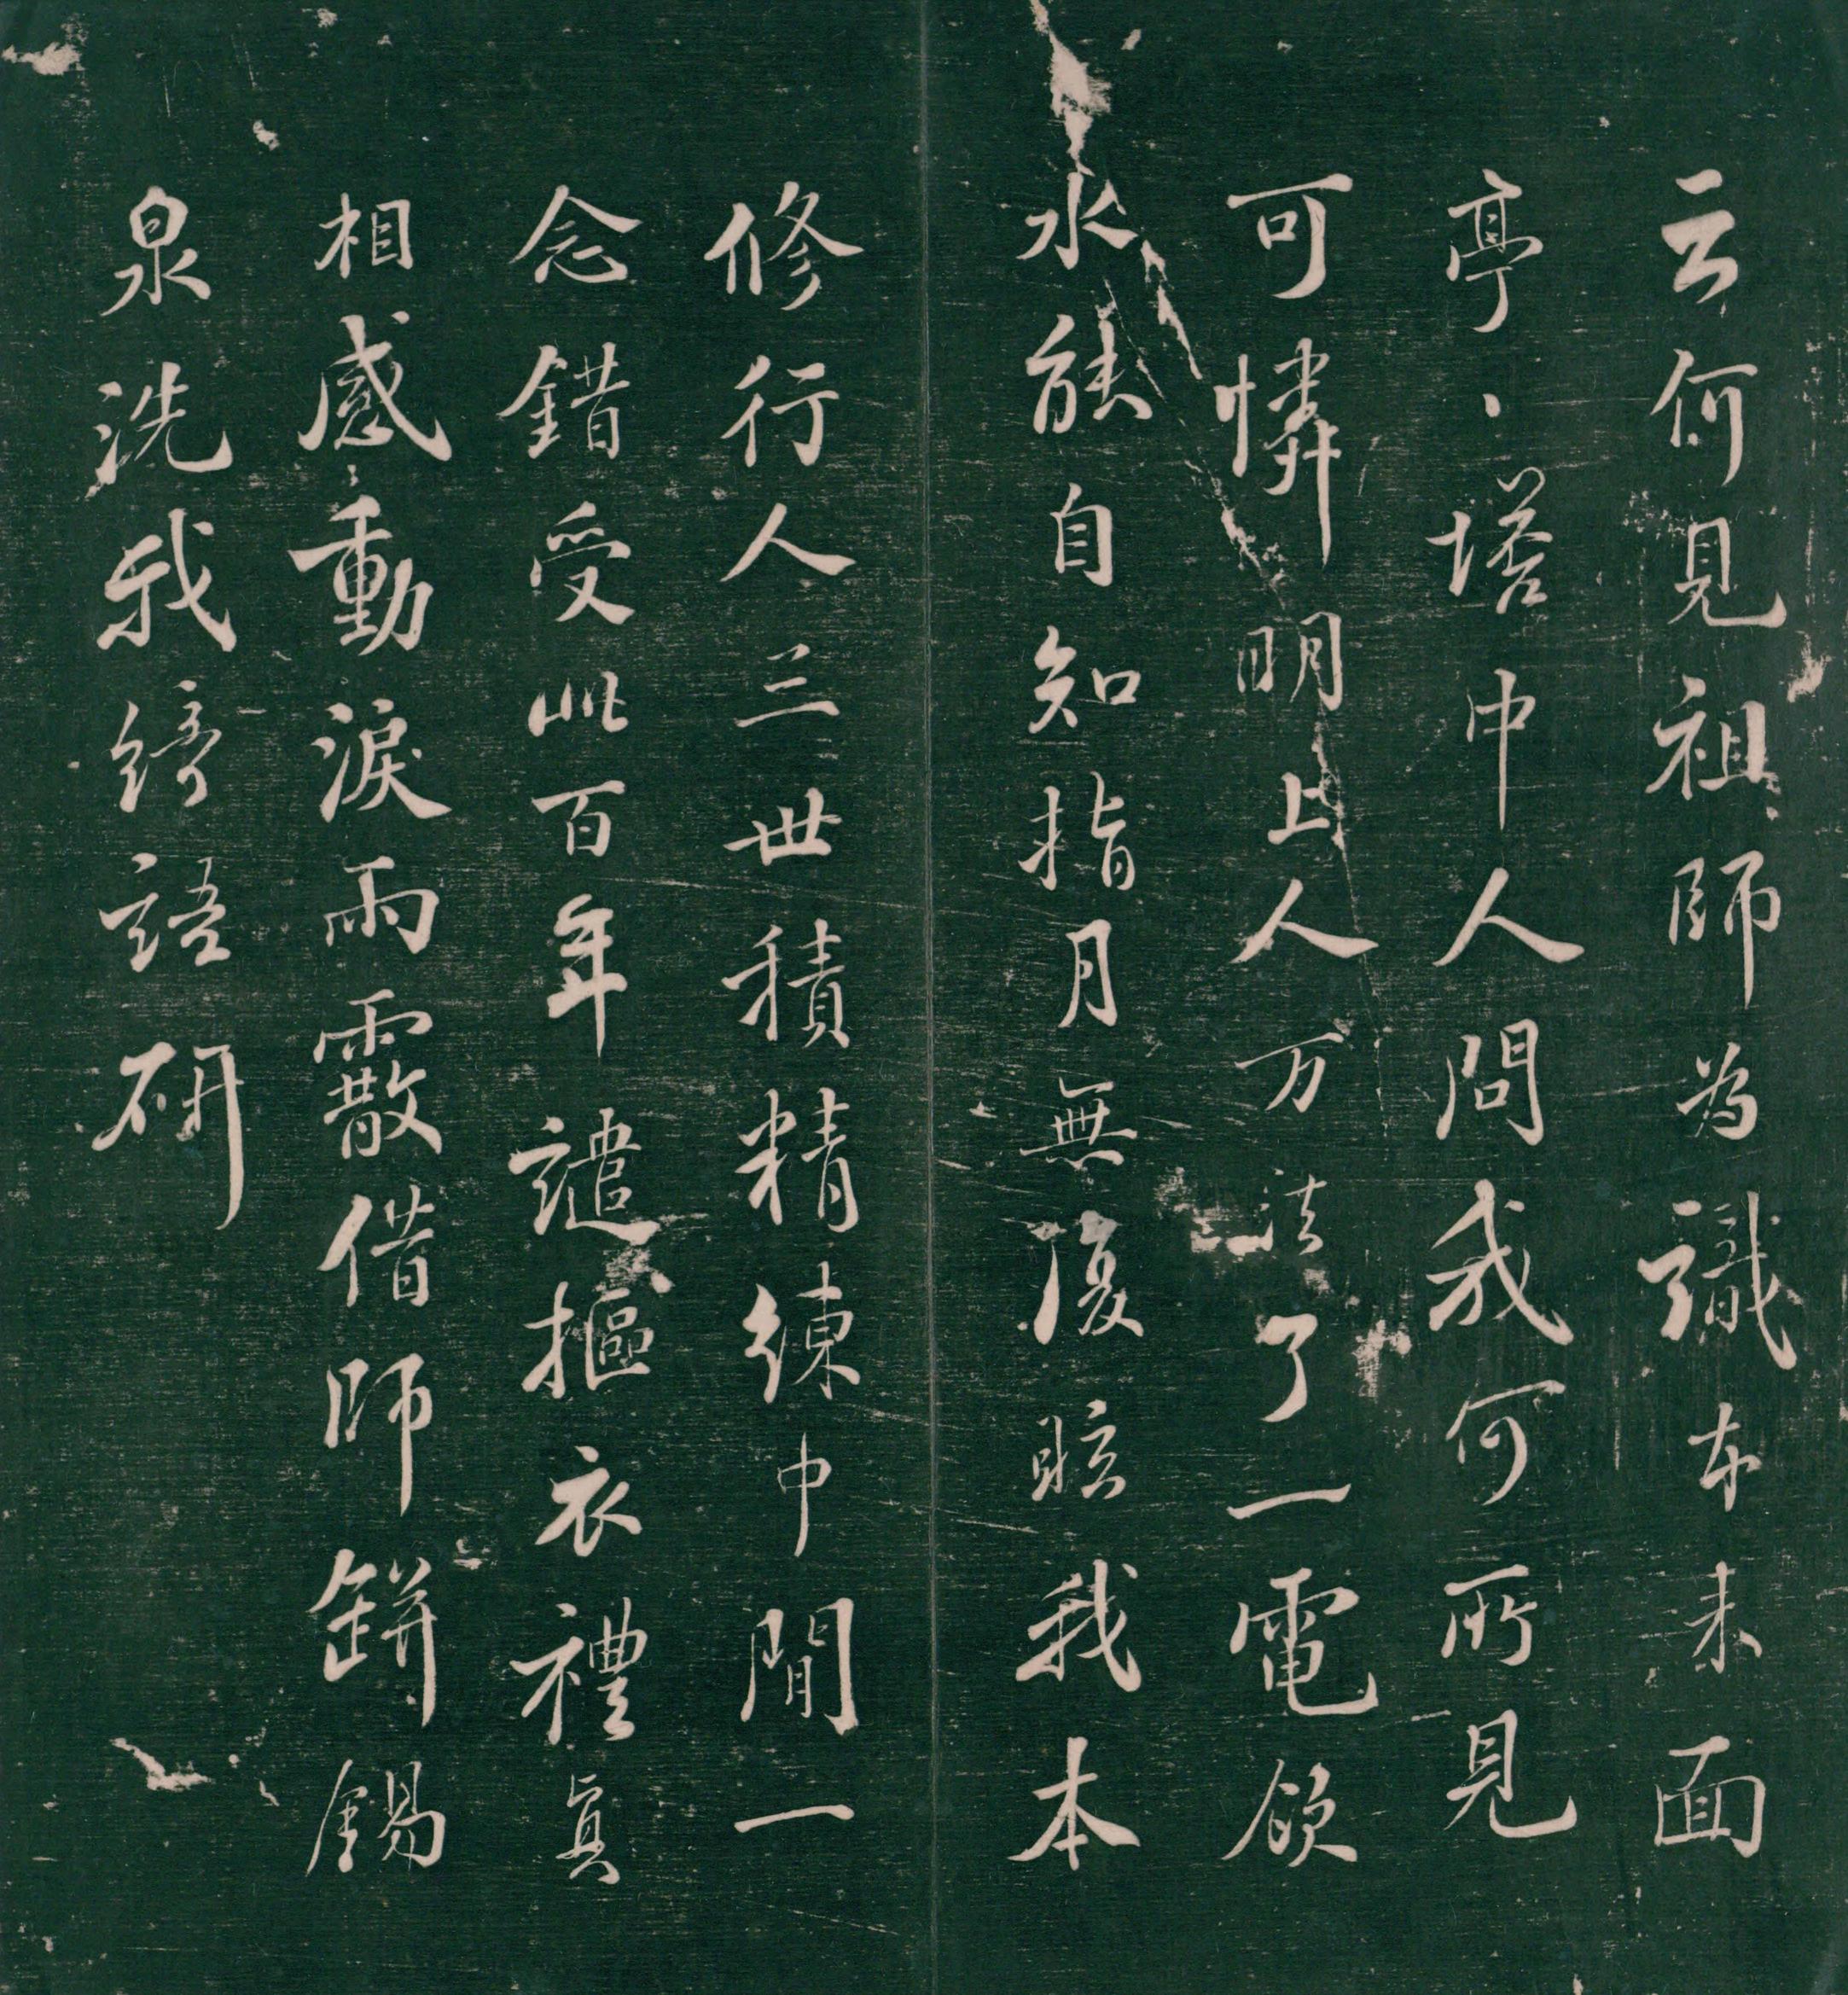 云何見祖師為識本来面
亭、塔中人問我何所見
可憐明上人万法了一電飲
水能自知指月無復眩我本
修行人三世積精練中間一
念錯受此百年譴摳衣禮真
相感動淚雨霰借師缾錫
泉洗我綺語研